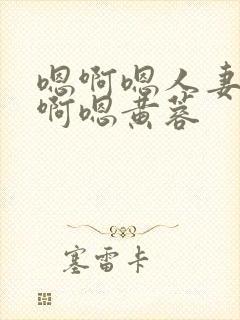 嗯啊嗯人妻
啊嗯黄蓉
塞雷卡